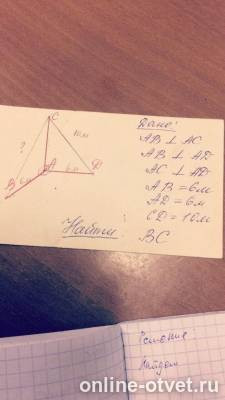 C
?
10м
A
B
6м
6м
D
Найти
Дано:
AB ⊥ AC
AB ⊥ AD
AC ⊥ AD
AB = 6м
AD = 6м
CD = 10м
BC
Решение
Найдем
online-otvet.ru